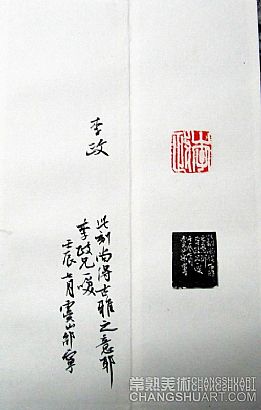 李政
此刻尚得古雅之意耶
李政兄嘱
壬辰七月虞山邹宁
李政
常熟美術 CHANGSHUART
CHANGSHUART.COM